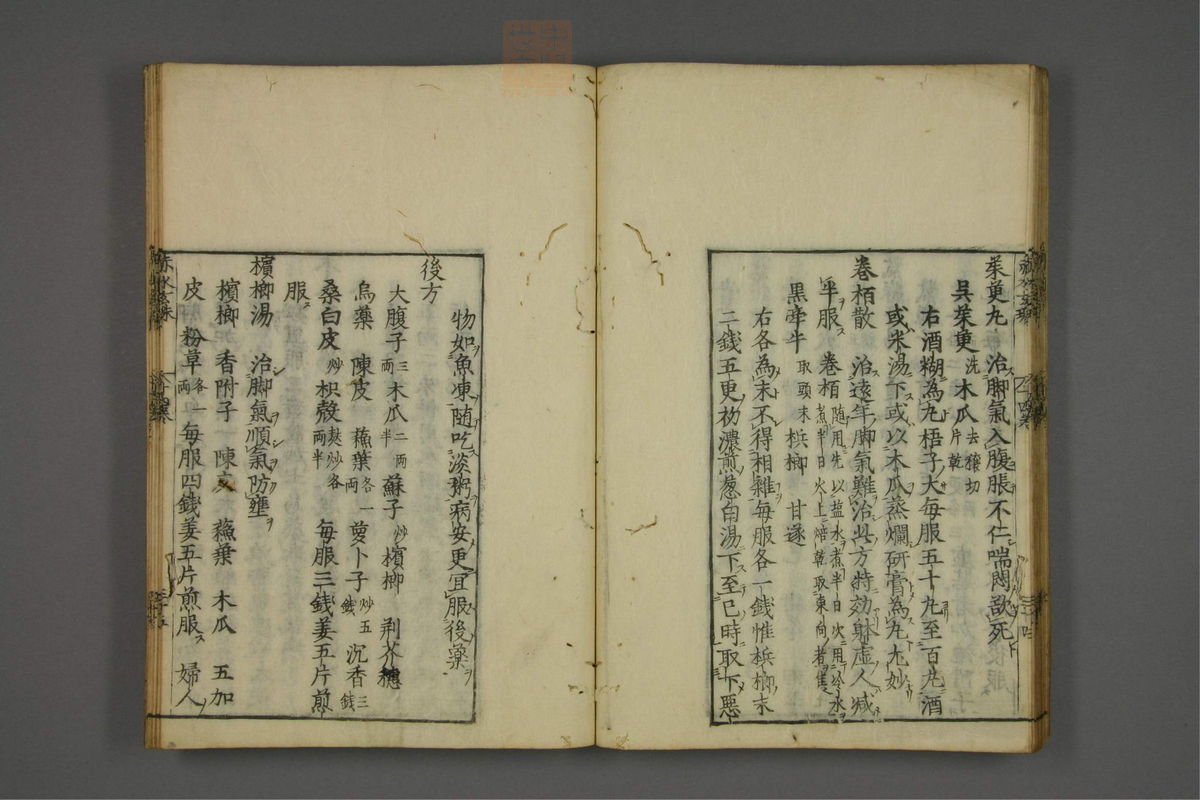 茱萸丸　治脚氣入腹脹不仁喘悶欲死
吳茱萸洗　木瓜去穰切片乾
右酒糊為丸梧子大每服五十丸至百丸酒
或米湯下或以木瓜蒸爛研膏為丸尤妙
卷栢散　治遠年脚氣難治此方特効躰虛人減
半服　卷栢隨用先以盐水煮半日次用冷水煮半日火上焙乾取東向者佳
黒牽牛取頭末　梹榔　甘遂
右各為末不得相雜每服各一錢惟梹榔末
二錢五更初濃煎葱白湯下至巳時取下惡
物如魚凍随吃淡粥病安更宜服後藥
後方
大腹子三両　木瓜二両半　蘇子炒　檳榔　荆芥穗
烏藥　陳皮　蘓葉各一両　萝卜子炒五錢　沉香三錢
桑白皮炒　枳殻麸炒各両半　每服三錢姜五片煎
服
檳榔湯　治脚氣順氣防壅
檳榔　香附子　陳皮　蘓葉　木瓜　五加
皮　粉草各一両　每服四錢姜五片煎服　婦人